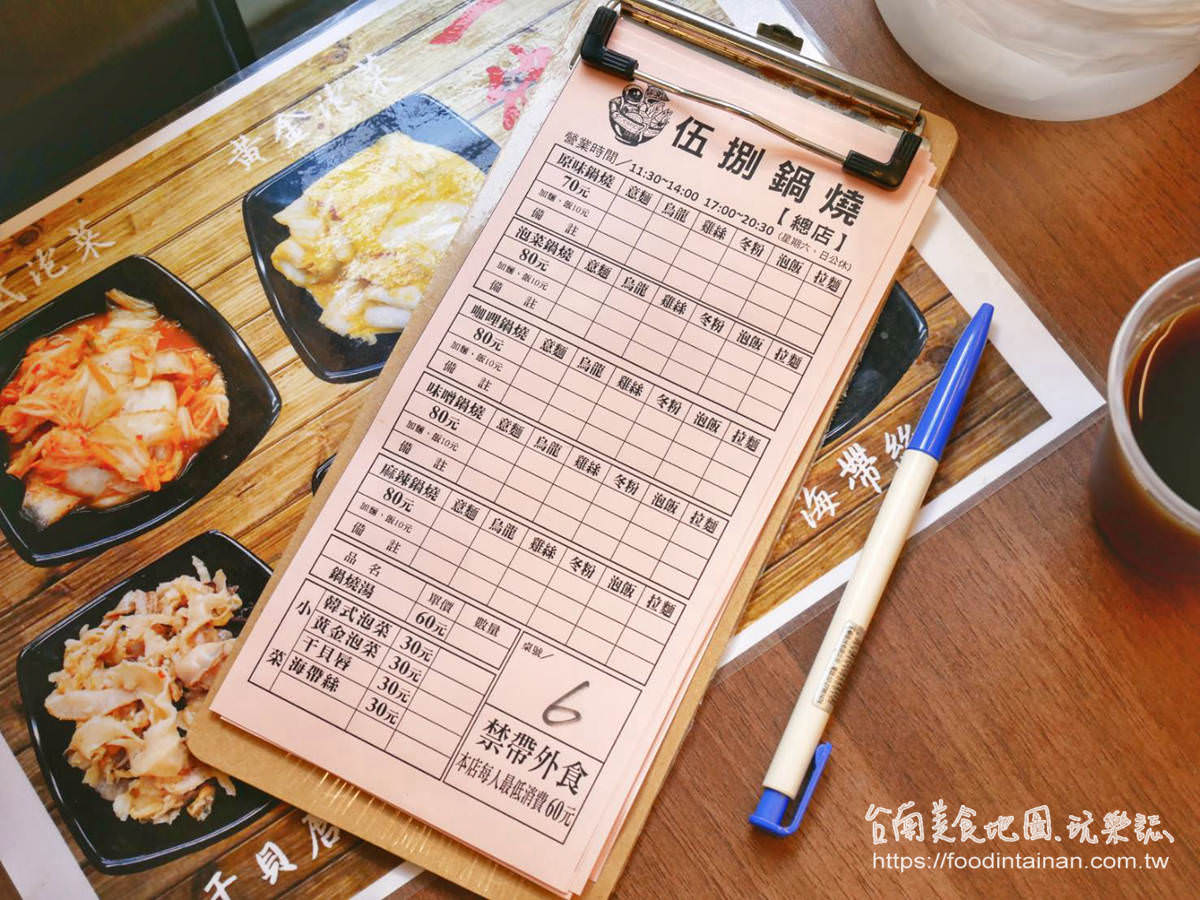 伍捌鍋燒
【總店】
營業時間／11:30~14:00 17:00~20:30(星期六、日公休)
原味鍋燒 意麵 烏龍 雞絲 冬粉 泡飯 拉麵
70元
加麵、飯10元
備 註
泡菜鍋燒 意麵 烏龍 雞絲 冬粉 泡飯 拉麵
80元
加麵、飯10元
備 註
咖哩鍋燒 意麵 烏龍 雞絲 冬粉 泡飯 拉麵
80元
加麵、飯10元
備 註
味噌鍋燒 意麵 烏龍 雞絲 冬粉 泡飯 拉麵
80元
加麵、飯10元
備 註
麻辣鍋燒 意麵 烏龍 雞絲 冬粉 泡飯 拉麵
80元
加麵、飯10元
備 註
品 名 單價 數量
鍋燒湯 60元
小菜
韓式泡菜 30元
黃金泡菜 30元
干貝唇 30元
海帶絲 30元
桌號／
6
禁帶外食
本店每人最低消費60元
黃金泡菜
式泡菜
干貝唇
海帶絲
台南美食地圖.玩樂誌
https://foodintainan.com.tw